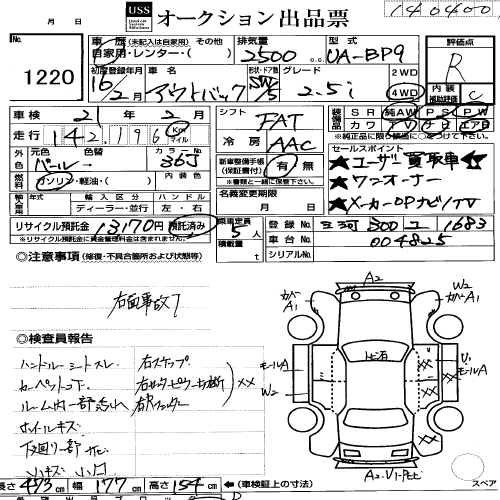 USS オークション出品票
月 日
140400
No. 1220
車歴 (未記入は自家用) その他
自家用・レンター・( )
排気量 2500 c.c.
型式 UA-BP9
評価点 R
初度登録年月 16年2月
車名 アウトバック
形状・ドア数 SW/5
グレード 2.5i
2WD 4WD
内装補助評価 C
車検 21年2月
シフト FAT
装備品 SR 純AW PS PW
カワ TV ナビ エアB
※純正品に限り備品に
走行 142,196 Km マイル
冷房 AAC
セールスポイント
外色 元色 パール 色替 カラーNo. 36J
新車整備手帳(保証書付) 有・無
※書類と一緒に保管下さい。
★ユーザー買取車!!
★ワンオーナー
★メーカーOPナビ/TV
燃料 ガソリン・軽油・( )
内装色
輸入車用 年式 輸入区分 ハンドル
ディーラー・並行 左・右
名義変更期限 月 日
リサイクル預託金 13170円 預託済み
※リサイクル預託金に資金管理料金は含まれません。
乗車定員 5人
積載量 t
登録No. 三河 300 ユ 1683
車台No. 004825
シリアルNo.
◎注意事項 (修復・不具合箇所および状態等)
右面事故
◎検査員報告
ハンドル シートスレ
カーペットコゲ
ルーム内一部汚れ
ホイルキズ
下廻り一部サビ
小キズ 小凹
右ステップ
右Rフェンダー
××
A2
W2
カバーA1
カバーA1
モールA
W2
トビ石
U1
モールA
××
××
××
スペア
長さ 473cm 幅 177cm 高さ 154cm ←(車検証上の寸法)